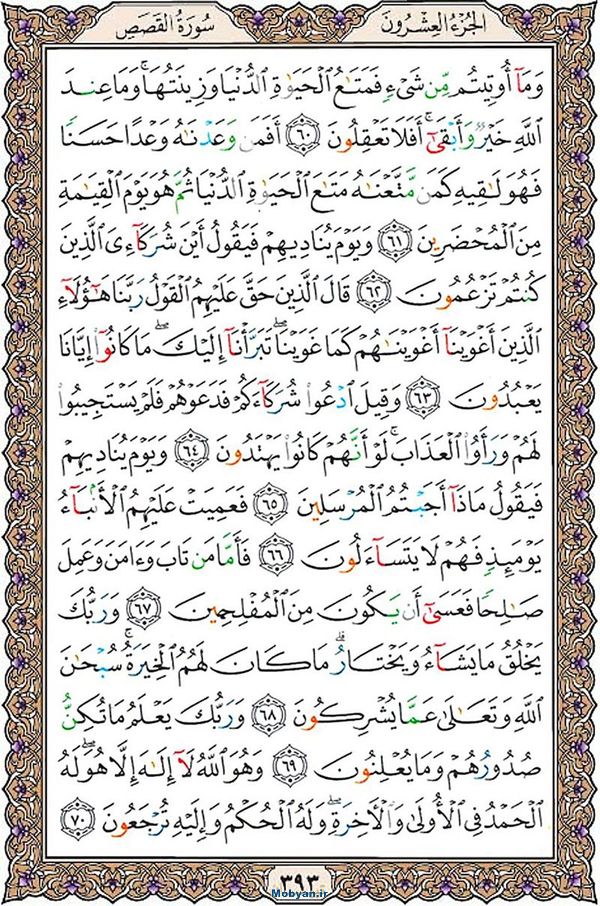 الجُزءُ العِشرُونَ
سُورَةُ القَصَصِ
وَمَآ أُوتِيتُم مِّن شَىْءٍ فَمَتَـٰعُ ٱلْحَيَوٰةِ ٱلدُّنْيَا وَزِينَتُهَا ۚ وَمَا عِندَ
ٱللَّهِ خَيْرٌ وَأَبْقَىٰٓ ۚ أَفَلَا تَعْقِلُونَ ٦٠ أَفَمَن وَعَدْنَـٰهُ وَعْدًا حَسَنًا
فَهُوَ لَـٰقِيهِ كَمَن مَّتَّعْنَـٰهُ مَتَـٰعَ ٱلْحَيَوٰةِ ٱلدُّنْيَا ثُمَّ هُوَ يَوْمَ ٱلْقِيَـٰمَةِ
مِنَ ٱلْمُحْضَرِينَ ٦١ وَيَوْمَ يُنَادِيهِمْ فَيَقُولُ أَيْنَ شُرَكَآءِىَ ٱلَّذِينَ
كُنتُمْ تَزْعُمُونَ ٦٢ قَالَ ٱلَّذِينَ حَقَّ عَلَيْهِمُ ٱلْقَوْلُ رَبَّنَا هَـٰٓؤُلَآءِ
ٱلَّذِينَ أَغْوَيْنَآ أَغْوَيْنَـٰهُمْ كَمَا غَوَيْنَا ۖ تَبَرَّأْنَآ إِلَيْكَ ۖ مَا كَانُوٓا۟ إِيَّانَا
يَعْبُدُونَ ٦٣ وَقِيلَ ٱدْعُوا۟ شُرَكَآءَكُمْ فَدَعَوْهُمْ فَلَمْ يَسْتَجِيبُوا۟
لَهُمْ وَرَأَوُا۟ ٱلْعَذَابَ ۚ لَوْ أَنَّهُمْ كَانُوا۟ يَهْتَدُونَ ٦٤ وَيَوْمَ يُنَادِيهِمْ
فَيَقُولُ مَاذَآ أَجَبْتُمُ ٱلْمُرْسَلِينَ ٦٥ فَعَمِيَتْ عَلَيْهِمُ ٱلْأَنۢبَآءُ
يَوْمَئِذٍ فَهُمْ لَا يَتَسَآءَلُونَ ٦٦ فَأَمَّا مَن تَابَ وَءَامَنَ وَعَمِلَ
صَـٰلِحًا فَعَسَىٰٓ أَن يَكُونَ مِنَ ٱلْمُفْلِحِينَ ٦٧ وَرَبُّكَ
يَخْلُقُ مَا يَشَآءُ وَيَخْتَارُ ۗ مَا كَانَ لَهُمُ ٱلْخِيَرَةُ ۚ سُبْحَـٰنَ
ٱللَّهِ وَتَعَـٰلَىٰ عَمَّا يُشْرِكُونَ ٦٨ وَرَبُّكَ يَعْلَمُ مَا تُكِنُّ
صُدُورُهُمْ وَمَا يُعْلِنُونَ ٦٩ وَهُوَ ٱللَّهُ لَآ إِلَـٰهَ إِلَّا هُوَ ۖ لَهُ
ٱلْحَمْدُ فِى ٱلْأُولَىٰ وَٱلْـَٔاخِرَةِ ۖ وَلَهُ ٱلْحُكْمُ وَإِلَيْهِ تُرْجَعُونَ ٧٠
٣٩٣
Mobyan.ir